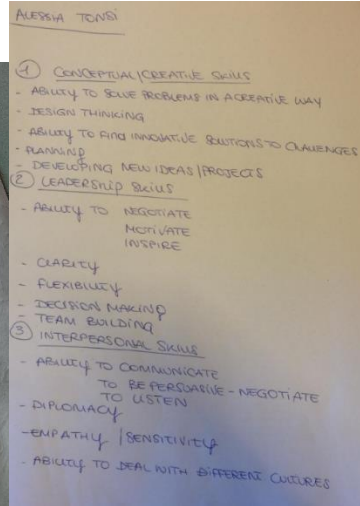 ALESSIA TONSI
① CONCEPTUAL/CREATIVE SKILLS
- ABILITY TO SOLVE PROBLEMS IN A CREATIVE WAY
- DESIGN THINKING
- ABILITY TO FIND INNOVATIVE SOLUTIONS TO CHALLENGES
- PLANNING
- DEVELOPING NEW IDEAS/PROJECTS
② LEADERSHIP SKILLS
- ABILITY TO NEGOTIATE
MOTIVATE
INSPIRE
- CLARITY
- FLEXIBILITY
- DECISION MAKING
- TEAM BUILDING
③ INTERPERSONAL SKILLS
- ABILITY TO COMMUNICATE
TO BE PERSUASIVE - NEGOTIATE
TO LISTEN
- DIPLOMACY
- EMPATHY / SENSITIVITY
- ABILITY TO DEAL WITH DIFFERENT CULTURES